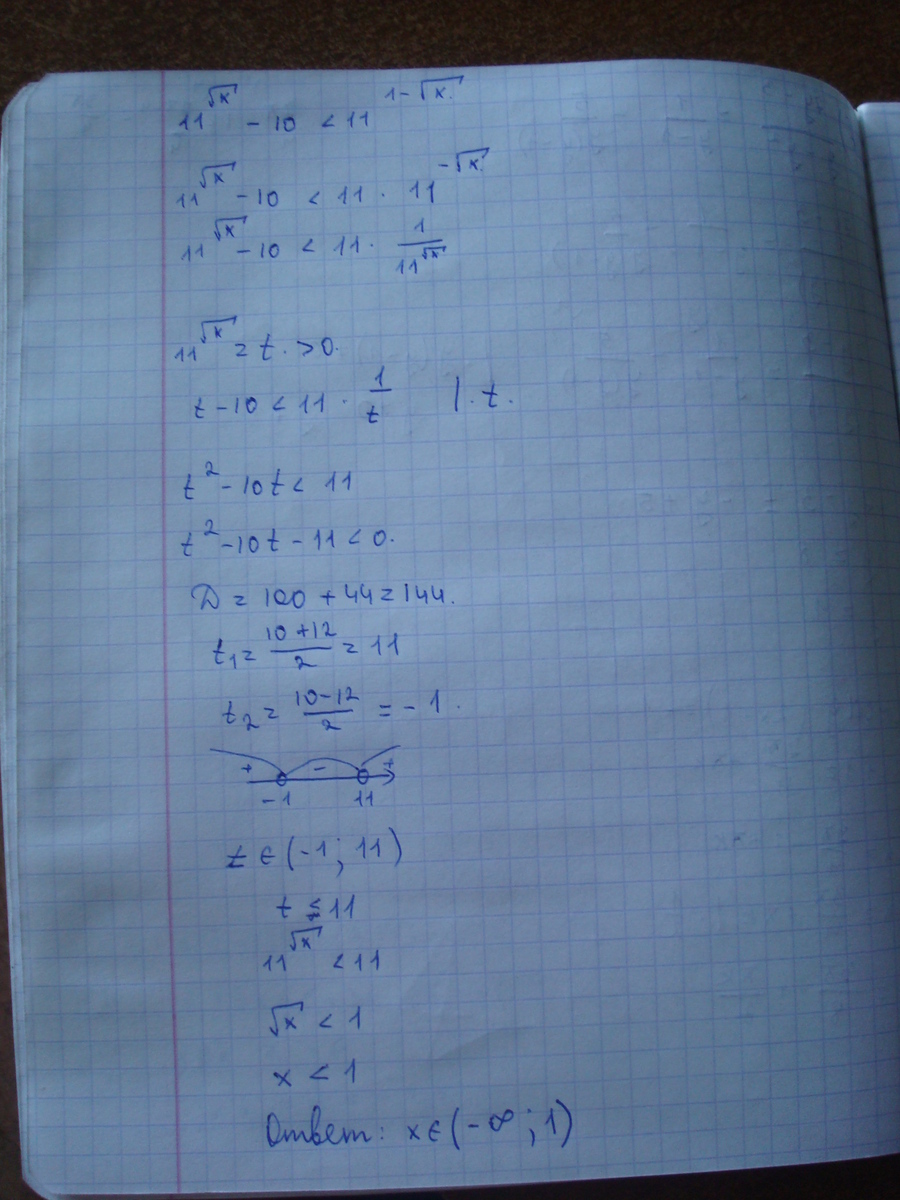 11^√x − 10 < 11^1−√x.
11^√x − 10 < 11 · 11^−√x
11^√x − 10 < 11 · 1/11^√x
11^√x = t. > 0.
t − 10 < 11 · 1/t | · t.
t² − 10t < 11
t² − 10t − 11 < 0.
D = 100 + 44 = 144.
t₁ = (10 + 12)/2 = 11
t₂ = (10 − 12)/2 = −1.
+ − +
−1 11
t ∈ (−1; 11)
t < 11
11^√x < 11
√x < 1
x < 1
Ответ: x ∈ (−∞; 1)